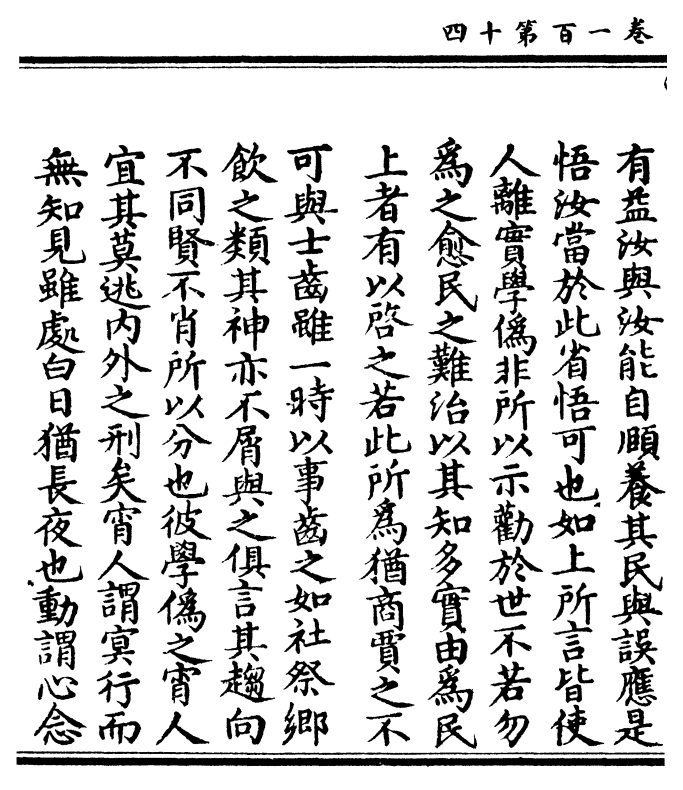 卷一百第十四
有益汝與汝能自頤養其民與誤應是
悟汝當於此省悟可也如上所言皆使
人離實學僞非所以示勸於世不若勿
爲之愈民之難治以其知多實由爲民
上者有以啓之若此所爲猶商賈之不
可與士齒雖一時以事齒之如社祭鄉
飲之類其神亦不屑與之俱言其趨向
不同賢不肖所以分也彼學僞之宵人
宜其莫逃內外之刑矣宵人謂冥行而
無知見雖處白日猶長夜也動謂心念